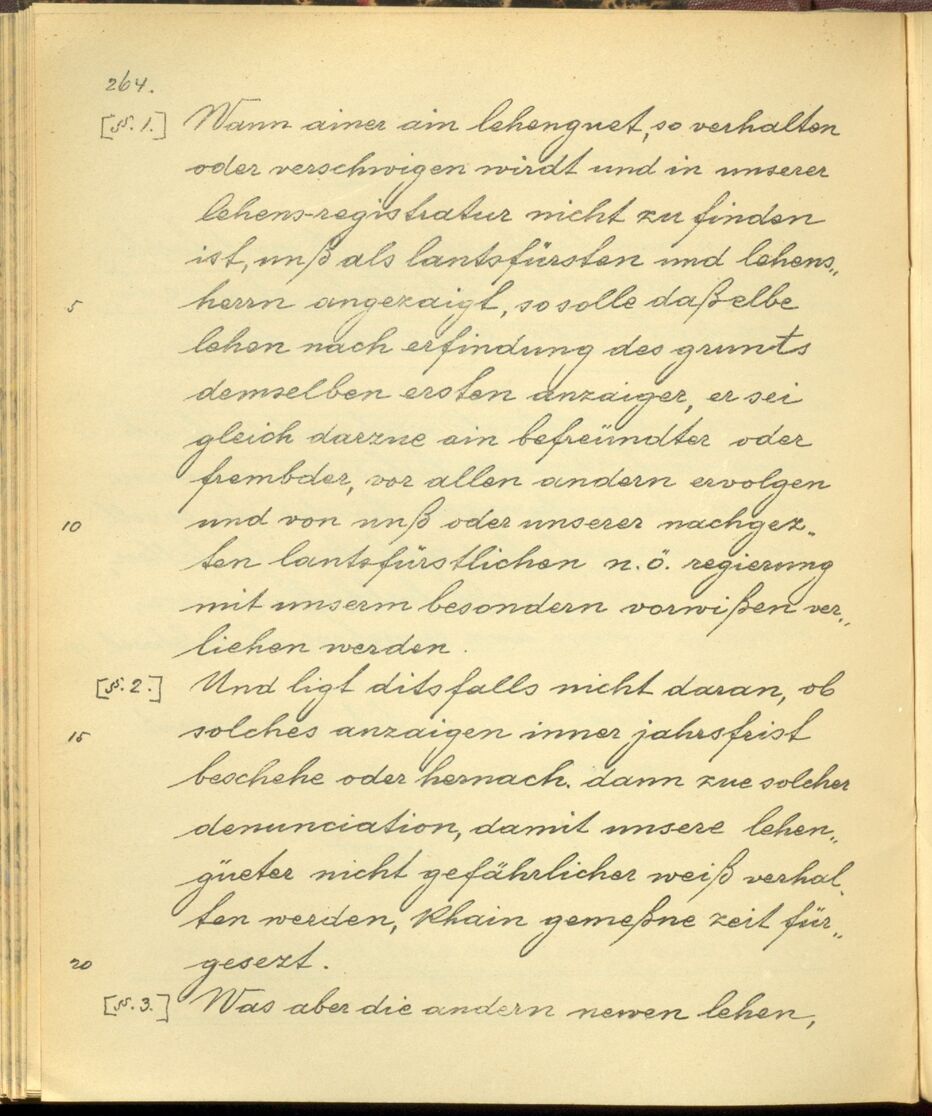 264.
[§. 1.] Wann ainer ain lehenguet, so verhalten
oder verschwigen wirdt und in unserer
lehens-registratur nicht zu finden
ist, unß als lantsfürsten und lehens„
5 herrn angezaigt, so solle daßelbe
lehen nach erfindung des grunts
demselben ersten anzaiger, er sei
gleich darzue ain befreündter oder
frembder, vor allen andern ervolgen
10 und von unß oder unserer nachgez„
ten lantsfürstlichen n. ö. regierung
mit unserm besondern vorwißen ver„
liehen werden.
[§. 2.] Und ligt ditsfalls nicht daran, ob
15 solches anzaigen inner jahrsfrist
beschehe oder hernach. dann zue solcher
denunciation, damit unsere lehen„
güeter nicht gefährlicher weiß verhal„
ten werden, khain gemeßne zeit für„
20 gesezt.
[§. 3.] Was aber die andern newen lehen,